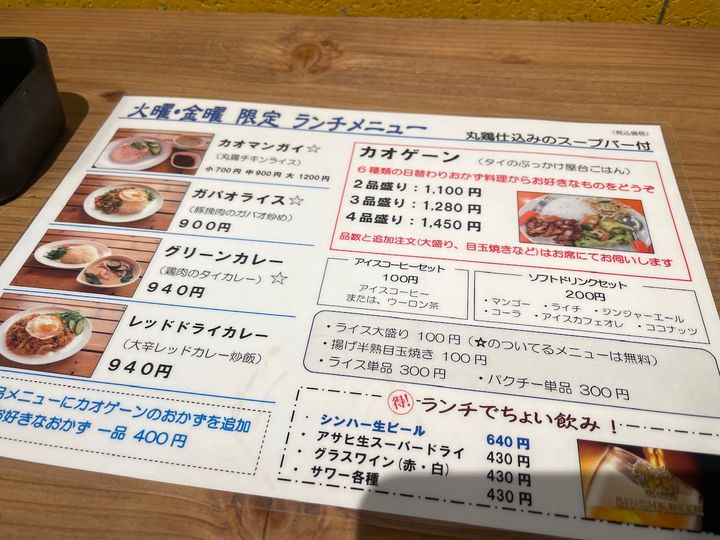 火曜・金曜 限定 ランチメニュー
丸鶏仕込みのスープバー付
(税込価格)
カオマンガイ☆
(丸鶏チキンライス)
小700円 中900円 大1200円
ガパオライス☆
(豚挽肉のガパオ炒め)
900円
グリーンカレー
(鶏肉のタイカレー)☆
940円
レッドドライカレー
(大辛レッドカレー炒飯)
940円
品メニューにカオゲーンのおかずを追加
お好きなおかず 一品 400円
カオゲーン (タイのぶっかけ屋台ごはん)
6種類の日替わりおかず料理からお好きなものをどうぞ
2品盛り:1,100円
3品盛り:1,280円
4品盛り:1,450円
品数と追加注文(大盛り、目玉焼きなど)はお席にてお伺いします
アイスコーヒーセット
100円
アイスコーヒー
または、ウーロン茶
ソフトドリンクセット
200円
・マンゴー ・ライチ ・ジンジャーエール
・コーラ ・アイスカフェオレ ・ココナッツ
・ライス大盛り 100円(☆のついてるメニューは無料)
・揚げ半熟目玉焼き 100円
・ライス単品 300円 ・パクチー単品 300円
得! ランチでちょい飲み!
・シンハー生ビール 640円
・アサヒ生スーパードライ 430円
・グラスワイン(赤・白) 430円
・サワー各種 430円
SINGHA BEER